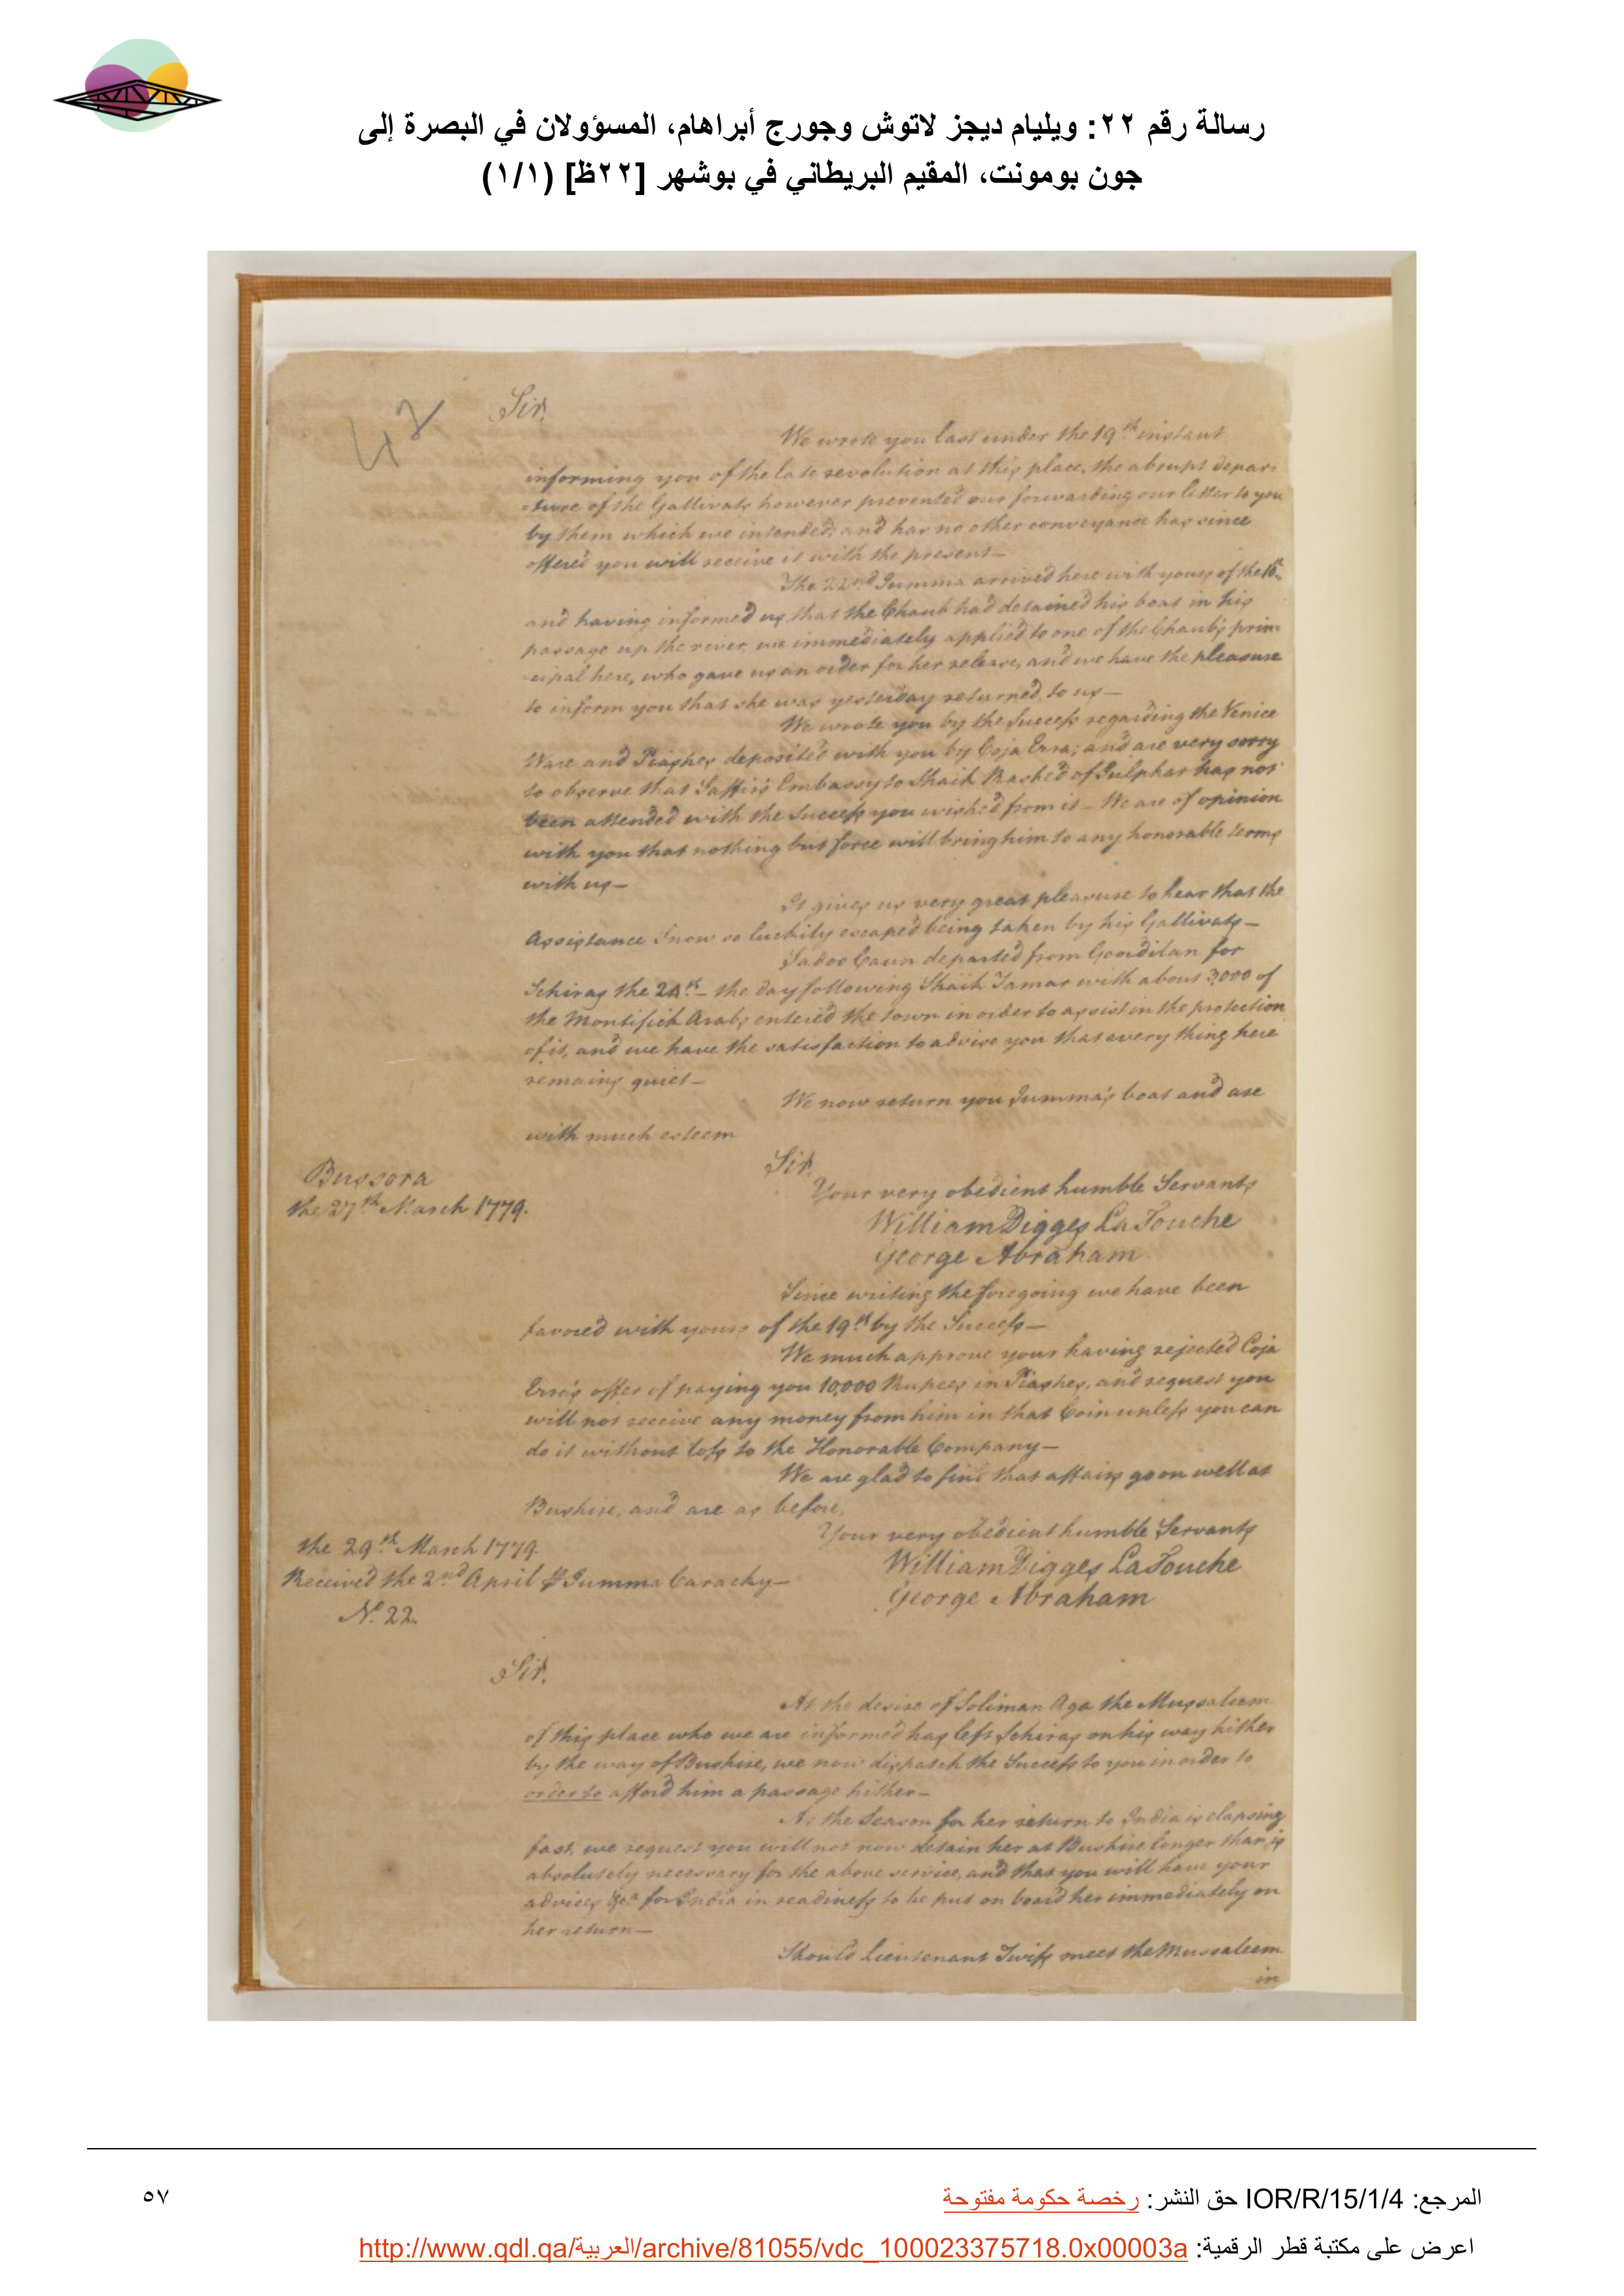 رسالة رقم ٢٢: ويليام ديجز لاتوش وجورج أبراهام، المسؤولان في البصرة إلى
جون بومونت، المقيم البريطاني في بوشهر [٢٢ظ] (١/١)
42
Sir,
We wrote you last under the 19th instant
informing you of the late revolution at this place, the abrupt depar=
=ture of the Gallivats however prevented our forwarding our letter to you
by them which we intended; and has no other conveyance has since
offered you will receive it with the present—
The 22nd Jumma arrived here with yours of the
and having informed us, that the Chaub had detained his boat in his
passage up the river, we immediately applied to one of the Chaub's prin=
=cipal here, who gave us an order for her release, and we have the pleasure
to inform you that she was yesterday returned to us—
We wrote you by the Success regarding the Venice
Ware and Piasters deposited with you by Coja Ezra; and are very sorry
to observe that Saffir's Embassy to Shaik Rashed of Julphar has not
been attended with the Success you wished from it— We are of opinion
with you that nothing but force will bring him to any honorable terms
with us—
It gives us very great pleasure to hear that the
Assistance Snow so luckily escaped being taken by his Gallivats—
Sadoo Caun departed from Goordilan for
Schiras the 24th— the day following Shaik Tamar with about 3,000 of
the Montifich Arabs entered the town in order to assist in the protection
of it, and we have the satisfaction to advise you that every thing here
remains quiet—
We now return you Jumma's boat and are
with much esteem
Sir,
Bussora
the 27th March 1779.
Your very obedient humble Servants
William Digges LaTouche
George Abraham
Since writing the foregoing we have been
favored with yours of the 19th by the Success—
We much approve your having rejected Coja
Ezra's offer of paying you 10,000 Rupees in Piastres, and request you
will not receive any money from him in that Coin unless you can
do it without loss to the Honorable Company—
We are glad to find that affairs go on well at
Bushire, and are as before,
Your very obedient humble Servants
the 29th March 1779.
William Digges LaTouche
Received the 2nd April P Jumma Carachy—
George Abraham
No. 22.
Sir,
At the desire of Soliman Aga the Mussaleem
of this place who we are informed has left Schiras on his way hither
by the way of Bushire, we now dispatch the Success to you in order to
order to afford him a passage hither—
As the Season for her return to India is elapsing
fast, we request you will not now detain her at Bushire longer than is
absolutely necessary for the above service, and that you will have your
advices &ca for India in readiness to be put on board her immediately on
her return—
Should Lieutenant Twiss meet the Mussaleem
in
المرجع: IOR/R/15/1/4 حق النشر: رخصة حكومة مفتوحة
٥٧
اعرض على مكتبة قطر الرقمية: http://www.qdl.qa/العربية/archive/81055/vdc_100023375718.0x00003a